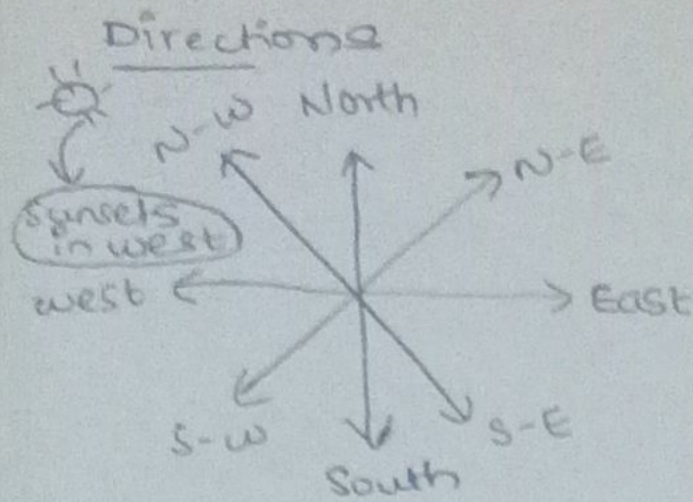 Directions
N-W North
N-E
Sunsets
in west
west
East
S-W
S-E
South